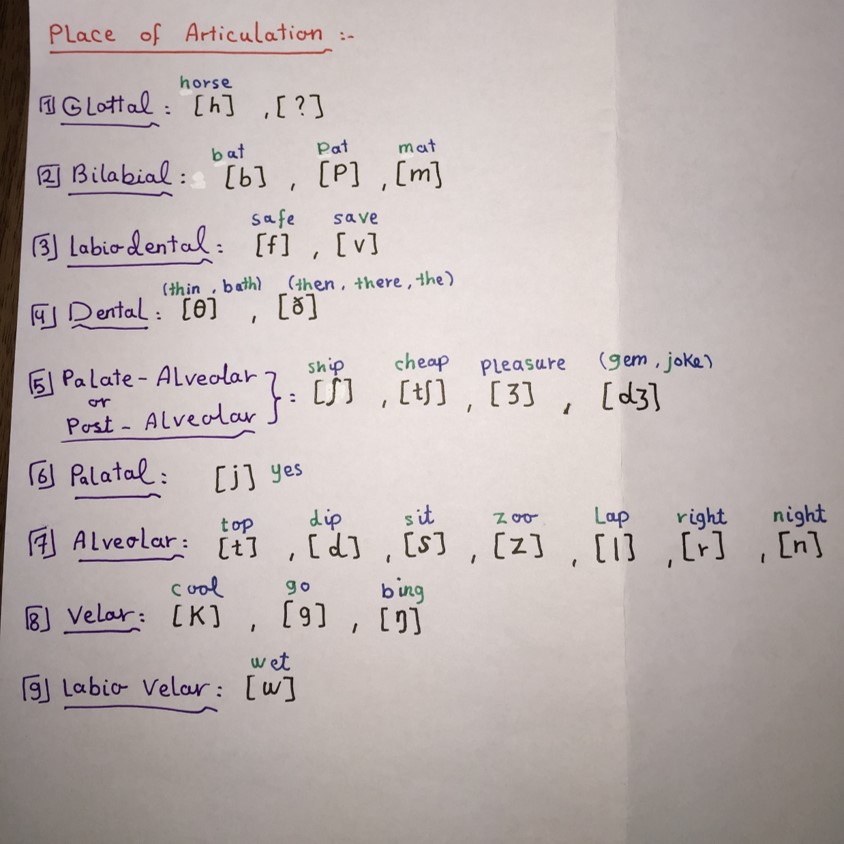 Place of Articulation :-
horse
[1] Glottal : [h] , [?]
bat Pat mat
[2] Bilabial : [b] , [P] , [m]
safe save
[3] Labiodental : [f] , [v]
(thin , bath) (then , there , the)
[4] Dental : [θ] , [ð]
ship cheap pleasure (gem , joke)
[5] Palate - Alveolar
or
Post - Alveolar } : [ʃ] , [tʃ] , [ʒ] , [dʒ]
[6] Palatal : [j] yes
top dip sit zoo Lap right night
[7] Alveolar : [t] , [d] , [s] , [z] , [l] , [r] , [n]
cool go bing
[8] Velar : [K] , [g] , [ŋ]
wet
[9] Labio Velar : [w]